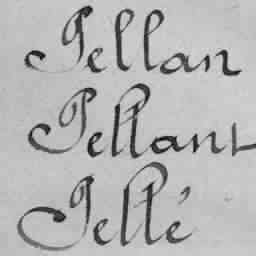 Pellan
Pellant
Pellé